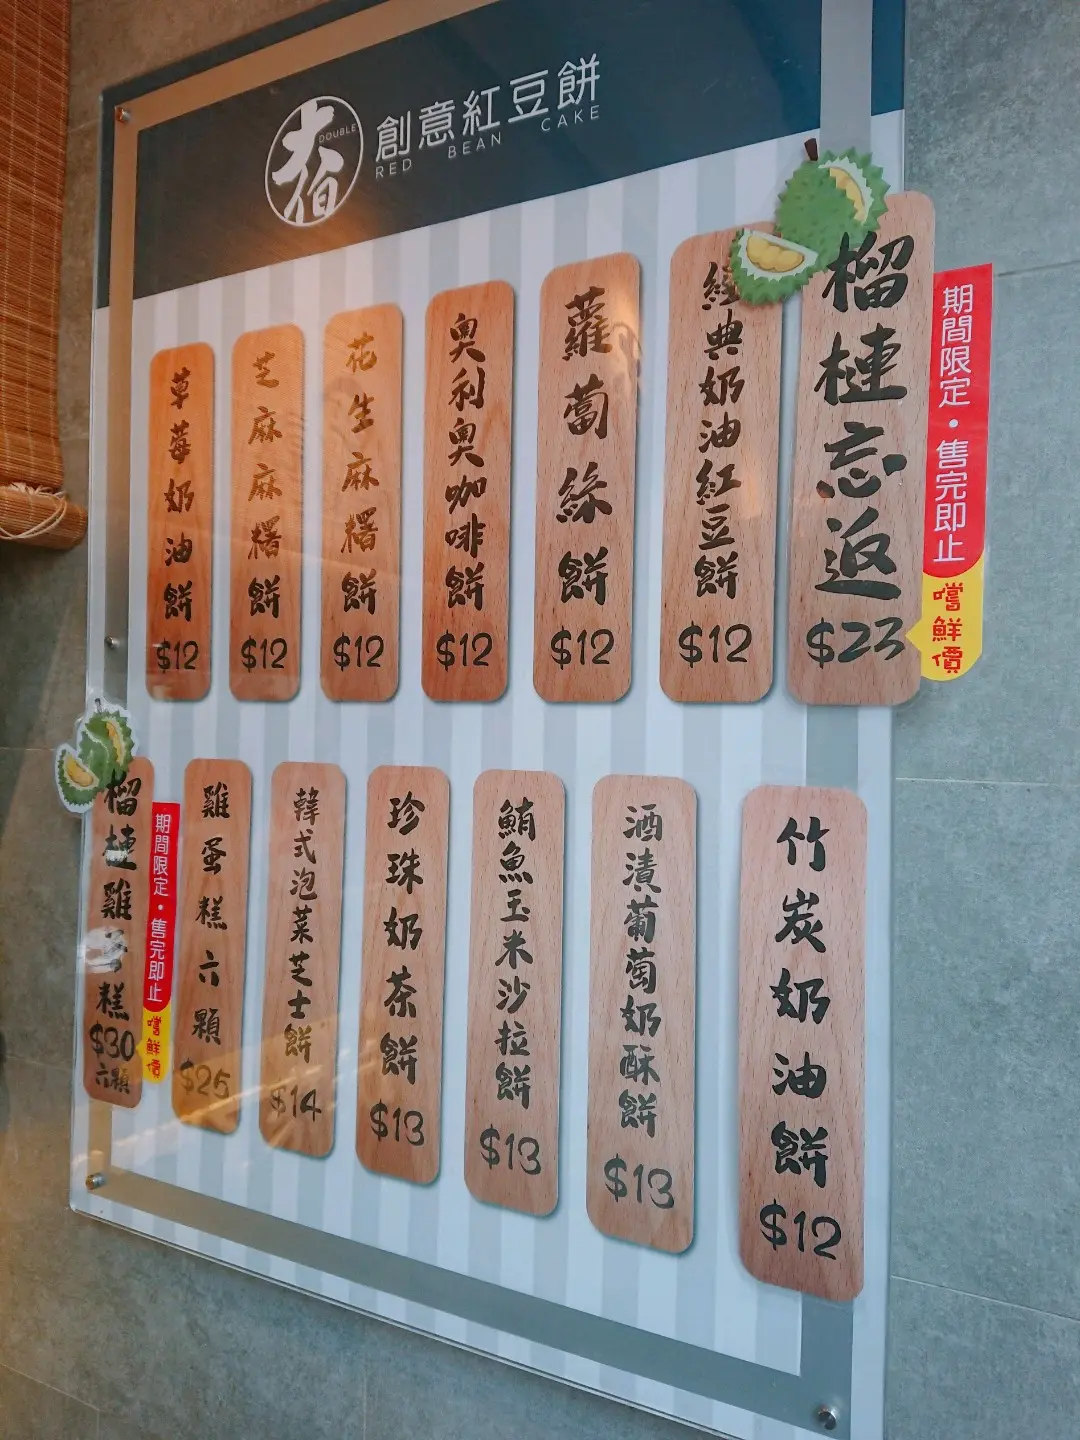 大伯
DOUBLE
創意紅豆餅
RED BEAN CAKE
榴槤忘返
$23
期間限定·售完即止
嚐鮮價
經典奶油紅豆餅
$12
蘿蔔絲餅
$12
奧利奧咖啡餅
$12
花生麻糬餅
$12
芝麻麻糬餅
$12
草莓奶油餅
$12
竹炭奶油餅
$12
酒漬葡萄奶酥餅
$13
鮪魚玉米沙拉餅
$13
珍珠奶茶餅
$13
韓式泡菜芝士餅
$14
雞蛋糕六顆
$25
榴槤雞蛋糕
$30
六顆
期間限定·售完即止
嚐鮮價